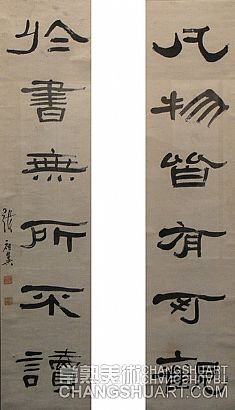 凡物皆有可觀
於書無所不讀
張祖翼
常熟美術 CHANGSHUART.COM
CHANGSHUART.COM